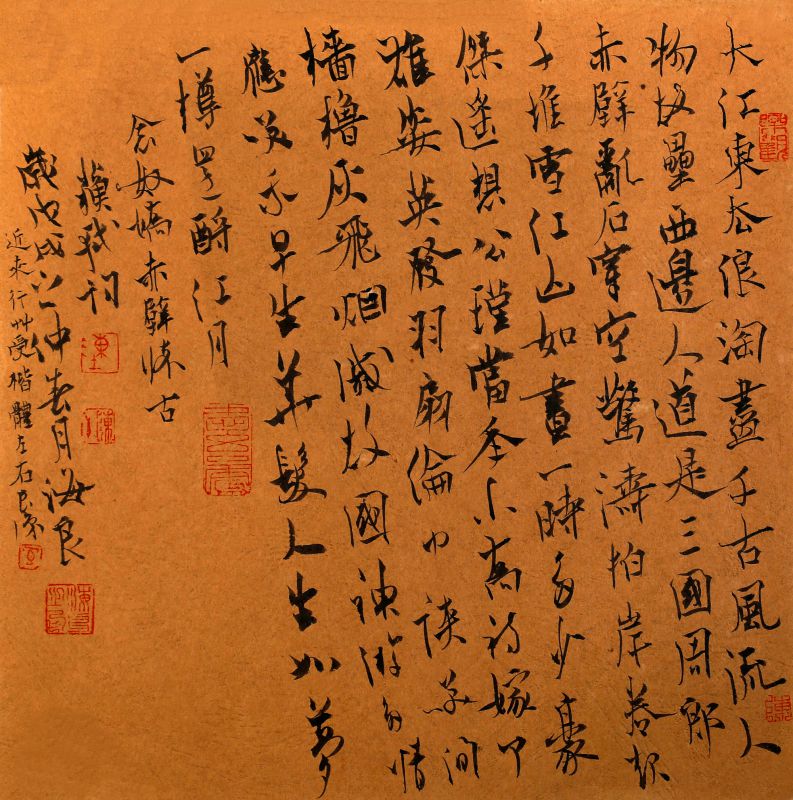 大江東去浪淘盡千古風流人
物故壘西邊人道是三國周郎
赤壁亂石穿空驚濤拍岸卷起
千堆雪江山如畫一時多少豪
傑遙想公瑾當年小喬初嫁了
雄姿英發羽扇綸巾談笑間
檣櫓灰飛烟滅故國神游多情
應笑我早生華髮人生如夢
一樽還酹江月
念奴嬌赤壁懷古
蘇軾詞
歲戊戌之仲春月海良
近來行艸受楷體左右良深